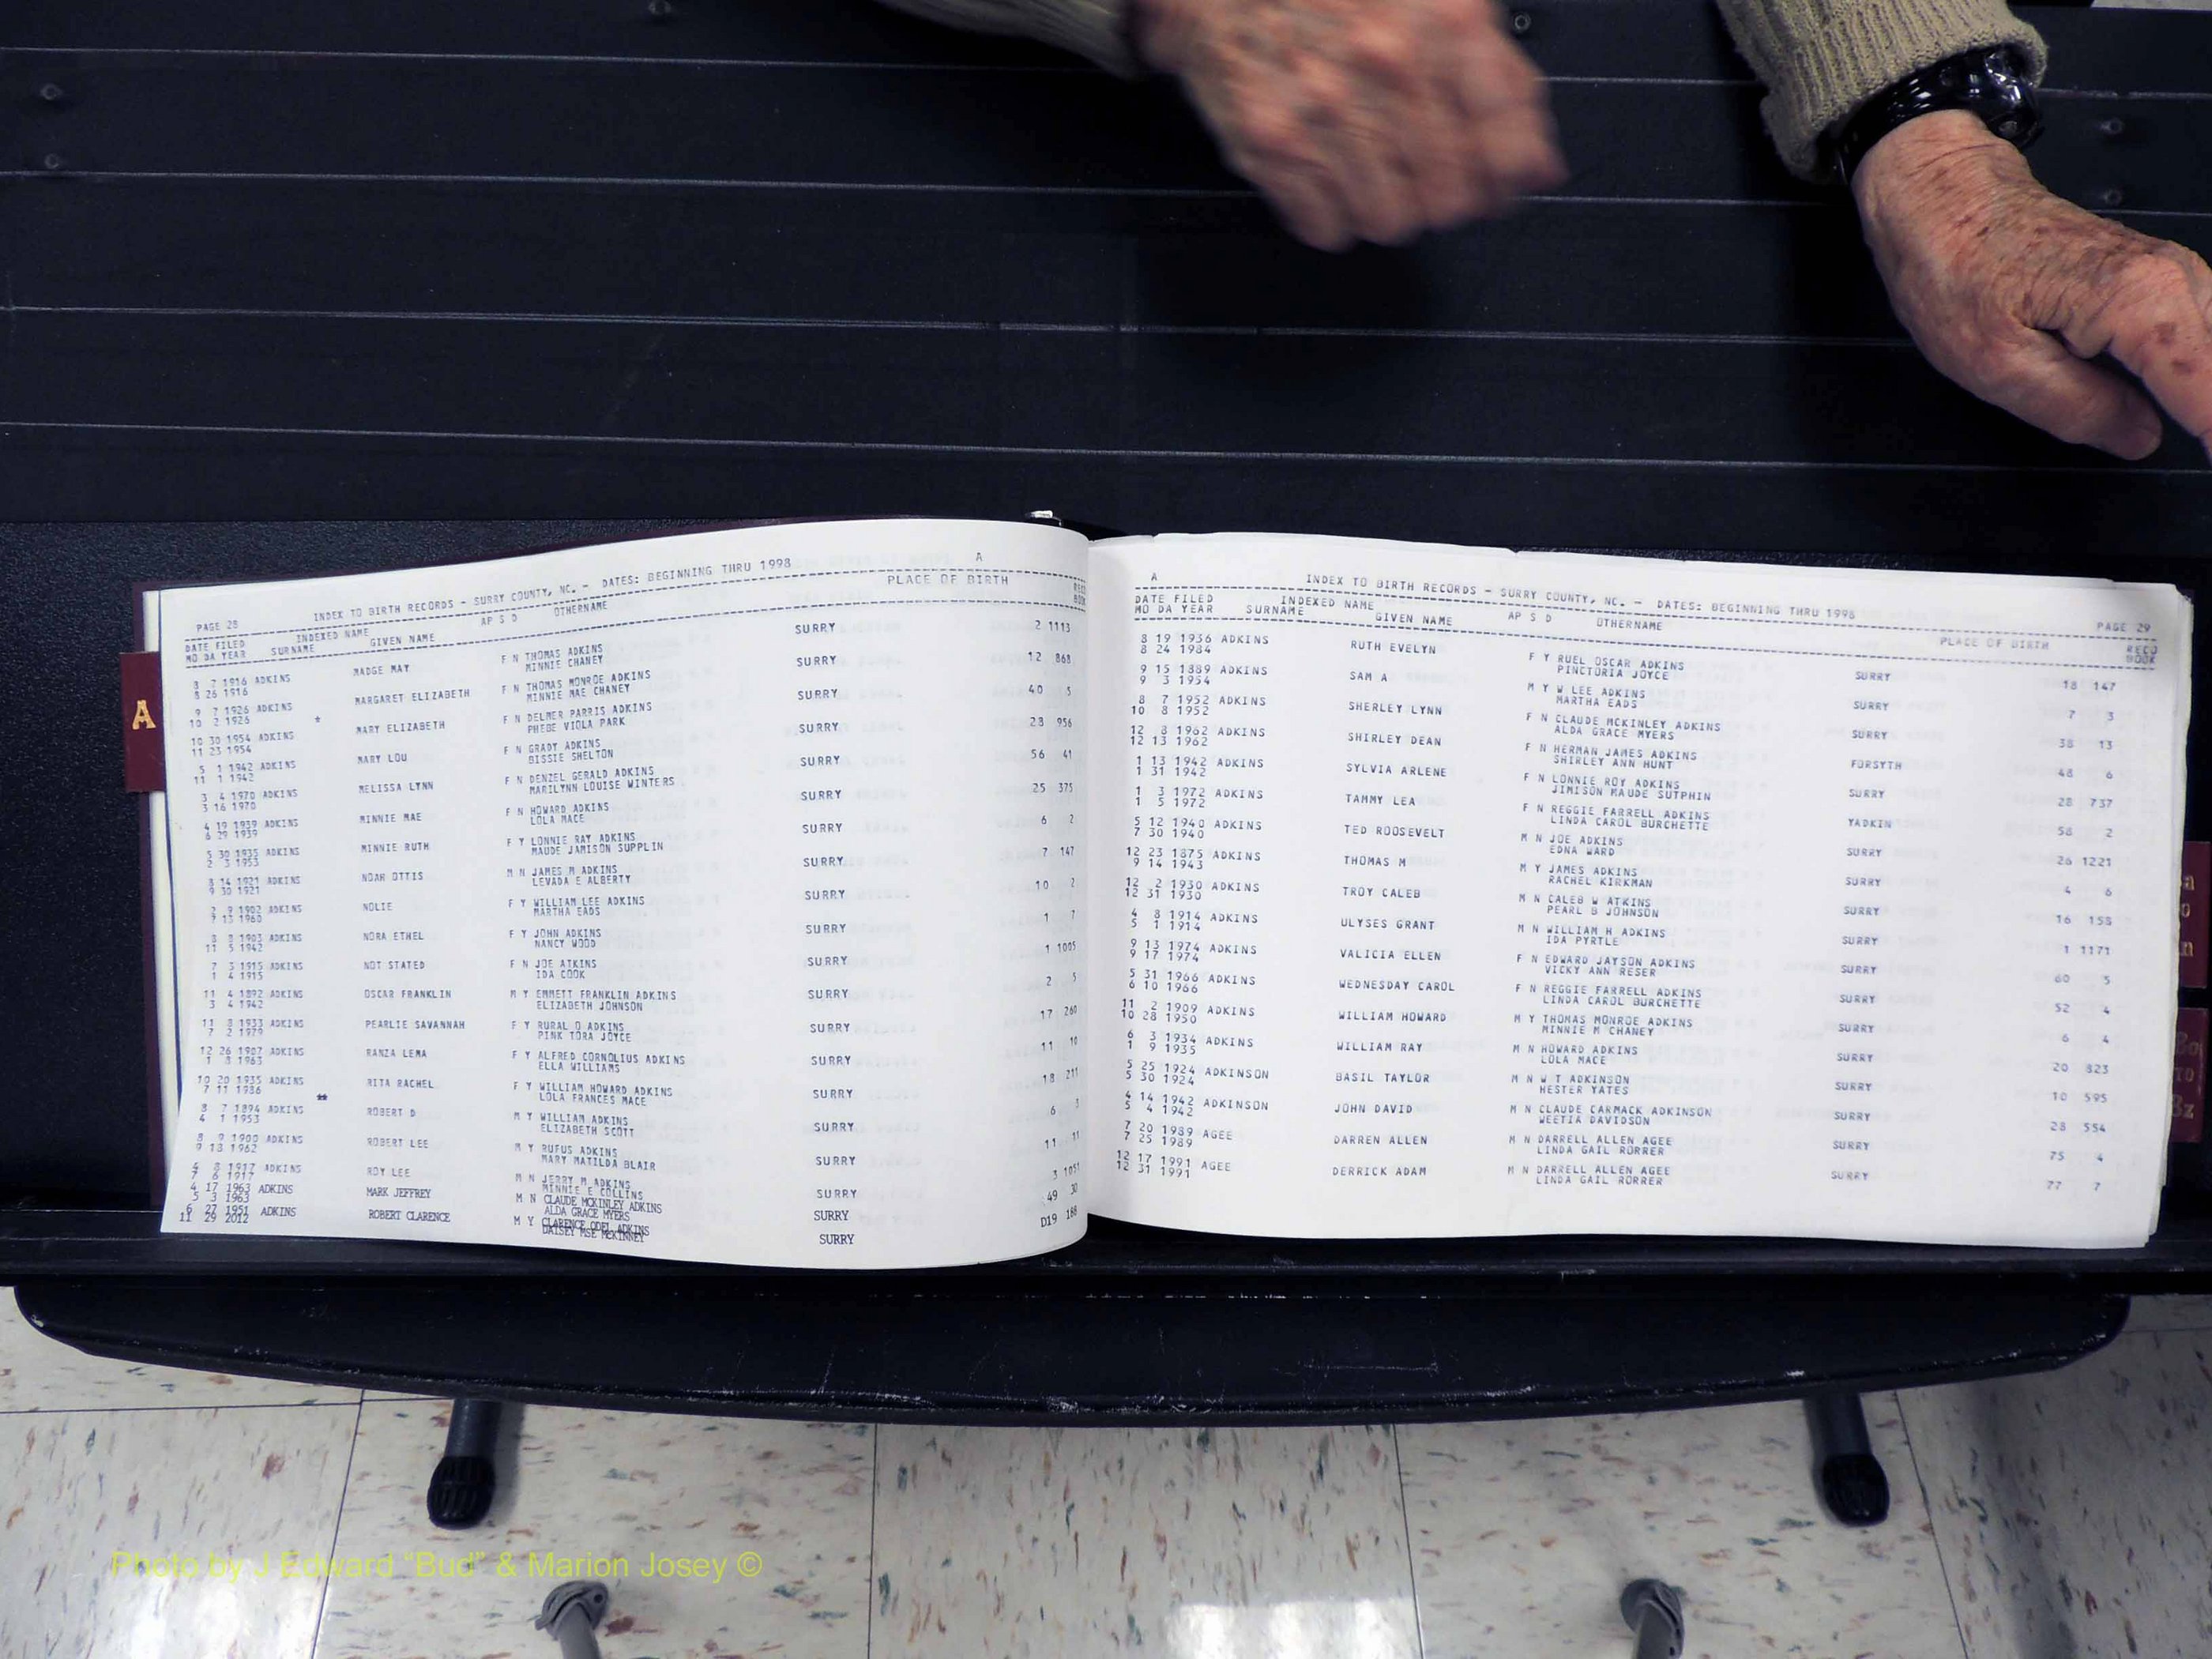 A
PAGE 28 INDEX TO BIRTH RECORDS - SURRY COUNTY, NC. - DATES: BEGINNING THRU 1998 A
DATE FILED INDEXED NAME AP S D OTHERNAME PLACE OF BIRTH
MO DA YEAR SURNAME GIVEN NAME
8 7 1916 ADKINS MADGE MAY F N THOMAS ADKINS SURRY 2 1113
8 26 1916 MINNIE CHANEY
9 7 1926 ADKINS MARGARET ELIZABETH F N THOMAS MONROE ADKINS SURRY 12 868
10 2 1926 * MINNIE MAE CHANEY
10 30 1954 ADKINS MARY ELIZABETH F N DELMER PARRIS ADKINS SURRY 40 5
11 23 1954 PHEBE VIOLA PARK
5 1 1942 ADKINS MARY LOU F N GRADY ADKINS SURRY 28 956
11 1 1942 BISSIE SHELTON
3 4 1970 ADKINS MELISSA LYNN F N DENZEL GERALD ADKINS SURRY 56 41
3 16 1970 MARILYNN LOUISE WINTERS
4 19 1939 ADKINS MINNIE MAE F N HOWARD ADKINS SURRY 25 375
6 29 1939 LOLA MACE
5 30 1935 ADKINS MINNIE RUTH F Y LONNIE RAY ADKINS SURRY 6 2
2 3 1953 MAUDE JAMISON SUPPLIN
8 14 1921 ADKINS NOAH OTTIS M N JAMES M ADKINS SURRY 7 147
9 30 1921 LEVADA E ALBERTY
2 9 1902 ADKINS NOLIE F Y WILLIAM LEE ADKINS SURRY 10 2
7 13 1960 MARTHA EADS
8 8 1903 ADKINS NORA ETHEL F Y JOHN ADKINS SURRY 1 7
11 5 1942 NANCY WOOD
7 3 1915 ADKINS NOT STATED F N JOE ATKINS SURRY 1 1005
1 4 1915 IDA COOK
11 4 1892 ADKINS OSCAR FRANKLIN M Y EMMETT FRANKLIN ADKINS SURRY 2 5
3 4 1942 ELIZABETH JOHNSON
11 8 1933 ADKINS PEARLIE SAVANNAH F Y RURAL O ADKINS SURRY 17 260
7 2 1979 PINK TORA JOYCE
12 26 1907 ADKINS RANZA LEMA F Y ALFRED CORNOLIUS ADKINS SURRY 11 10
1 8 1963 ELLA WILLIAMS
10 20 1935 ADKINS RITA RACHEL F Y WILLIAM HOWARD ADKINS SURRY 18 211
7 11 1986 ** LOLA FRANCES MACE
8 7 1894 ADKINS ROBERT D M Y WILLIAM ADKINS SURRY 6 3
4 1 1953 ELIZABETH SCOTT
8 9 1900 ADKINS ROBERT LEE M Y RUFUS ADKINS SURRY 11 11
9 18 1962 MARY MATILDA BLAIR
4 8 1917 ADKINS ROY LEE M N JERRY M ADKINS SURRY 3 1051
7 6 1917 MINNIE E COLLINS
4 17 1963 ADKINS MARK JEFFREY M N CLAUDE MCKINLEY ADKINS SURRY 49 30
5 3 1963 ALDA GRACE MYERS
6 27 1951 ADKINS ROBERT CLARENCE M Y CLARENCE ODEL ADKINS SURRY D19 188
11 29 2012 DAISEY MSE McKINNEY
A INDEX TO BIRTH RECORDS - SURRY COUNTY, NC. - DATES: BEGINNING THRU 1998 PAGE 29
DATE FILED INDEXED NAME AP S D OTHERNAME PLACE OF BIRTH RECO
MO DA YEAR SURNAME GIVEN NAME BOOK
8 19 1936 ADKINS RUTH EVELYN F Y RUEL OSCAR ADKINS SURRY 18 147
8 24 1984 PINCTORIA JOYCE
9 15 1889 ADKINS SAM A M Y W LEE ADKINS SURRY 7 3
9 3 1954 MARTHA EADS
8 7 1952 ADKINS SHERLEY LYNN F N CLAUDE MCKINLEY ADKINS SURRY 38 13
10 8 1952 ALDA GRACE MYERS
12 8 1962 ADKINS SHIRLEY DEAN F N HERMAN JAMES ADKINS FORSYTH 48 6
12 13 1962 SHIRLEY ANN HUNT
1 13 1942 ADKINS SYLVIA ARLENE F N LONNIE ROY ADKINS SURRY 28 737
1 31 1942 JIMISON MAUDE SUTPHIN
1 3 1972 ADKINS TAMMY LEA F N REGGIE FARRELL ADKINS YADKIN 58 2
1 5 1972 LINDA CAROL BURCHETTE
5 12 1940 ADKINS TED ROOSEVELT M N JOE ADKINS SURRY 26 1221
7 30 1940 EDNA WARD
12 23 1875 ADKINS THOMAS M M Y JAMES ADKINS SURRY 4 6
9 14 1943 RACHEL KIRKMAN
12 2 1930 ADKINS TROY CALEB M N CALEB W ATKINS SURRY 16 158
12 31 1930 PEARL B JOHNSON
4 8 1914 ADKINS ULYSES GRANT M N WILLIAM H ADKINS SURRY 1 1171
5 1 1914 IDA PYRTLE
9 13 1974 ADKINS VALICIA ELLEN F N EDWARD JAYSON ADKINS SURRY 60 5
9 17 1974 VICKY ANN RESER
5 31 1966 ADKINS WEDNESDAY CAROL F N REGGIE FARRELL ADKINS SURRY 52 4
6 10 1966 LINDA CAROL BURCHETTE
11 2 1909 ADKINS WILLIAM HOWARD M Y THOMAS MONROE ADKINS SURRY 6 4
10 28 1950 MINNIE M CHANEY
6 3 1934 ADKINS WILLIAM RAY M N HOWARD ADKINS SURRY 20 823
1 9 1935 LOLA MACE
5 25 1924 ADKINSON BASIL TAYLOR M N W T ADKINSON SURRY 10 595
5 30 1924 HESTER YATES
4 14 1942 ADKINSON JOHN DAVID M N CLAUDE CARMACK ADKINSON SURRY 28 554
5 4 1942 WEETIA DAVIDSON
7 20 1989 AGEE DARREN ALLEN M N DARRELL ALLEN AGEE SURRY 75 4
7 25 1989 LINDA GAIL RORRER
12 17 1991 AGEE DERRICK ADAM M N DARRELL ALLEN AGEE SURRY 77 7
12 31 1991 LINDA GAIL RORRER
Photo by J Edward "Bud" & Marion Josey ©